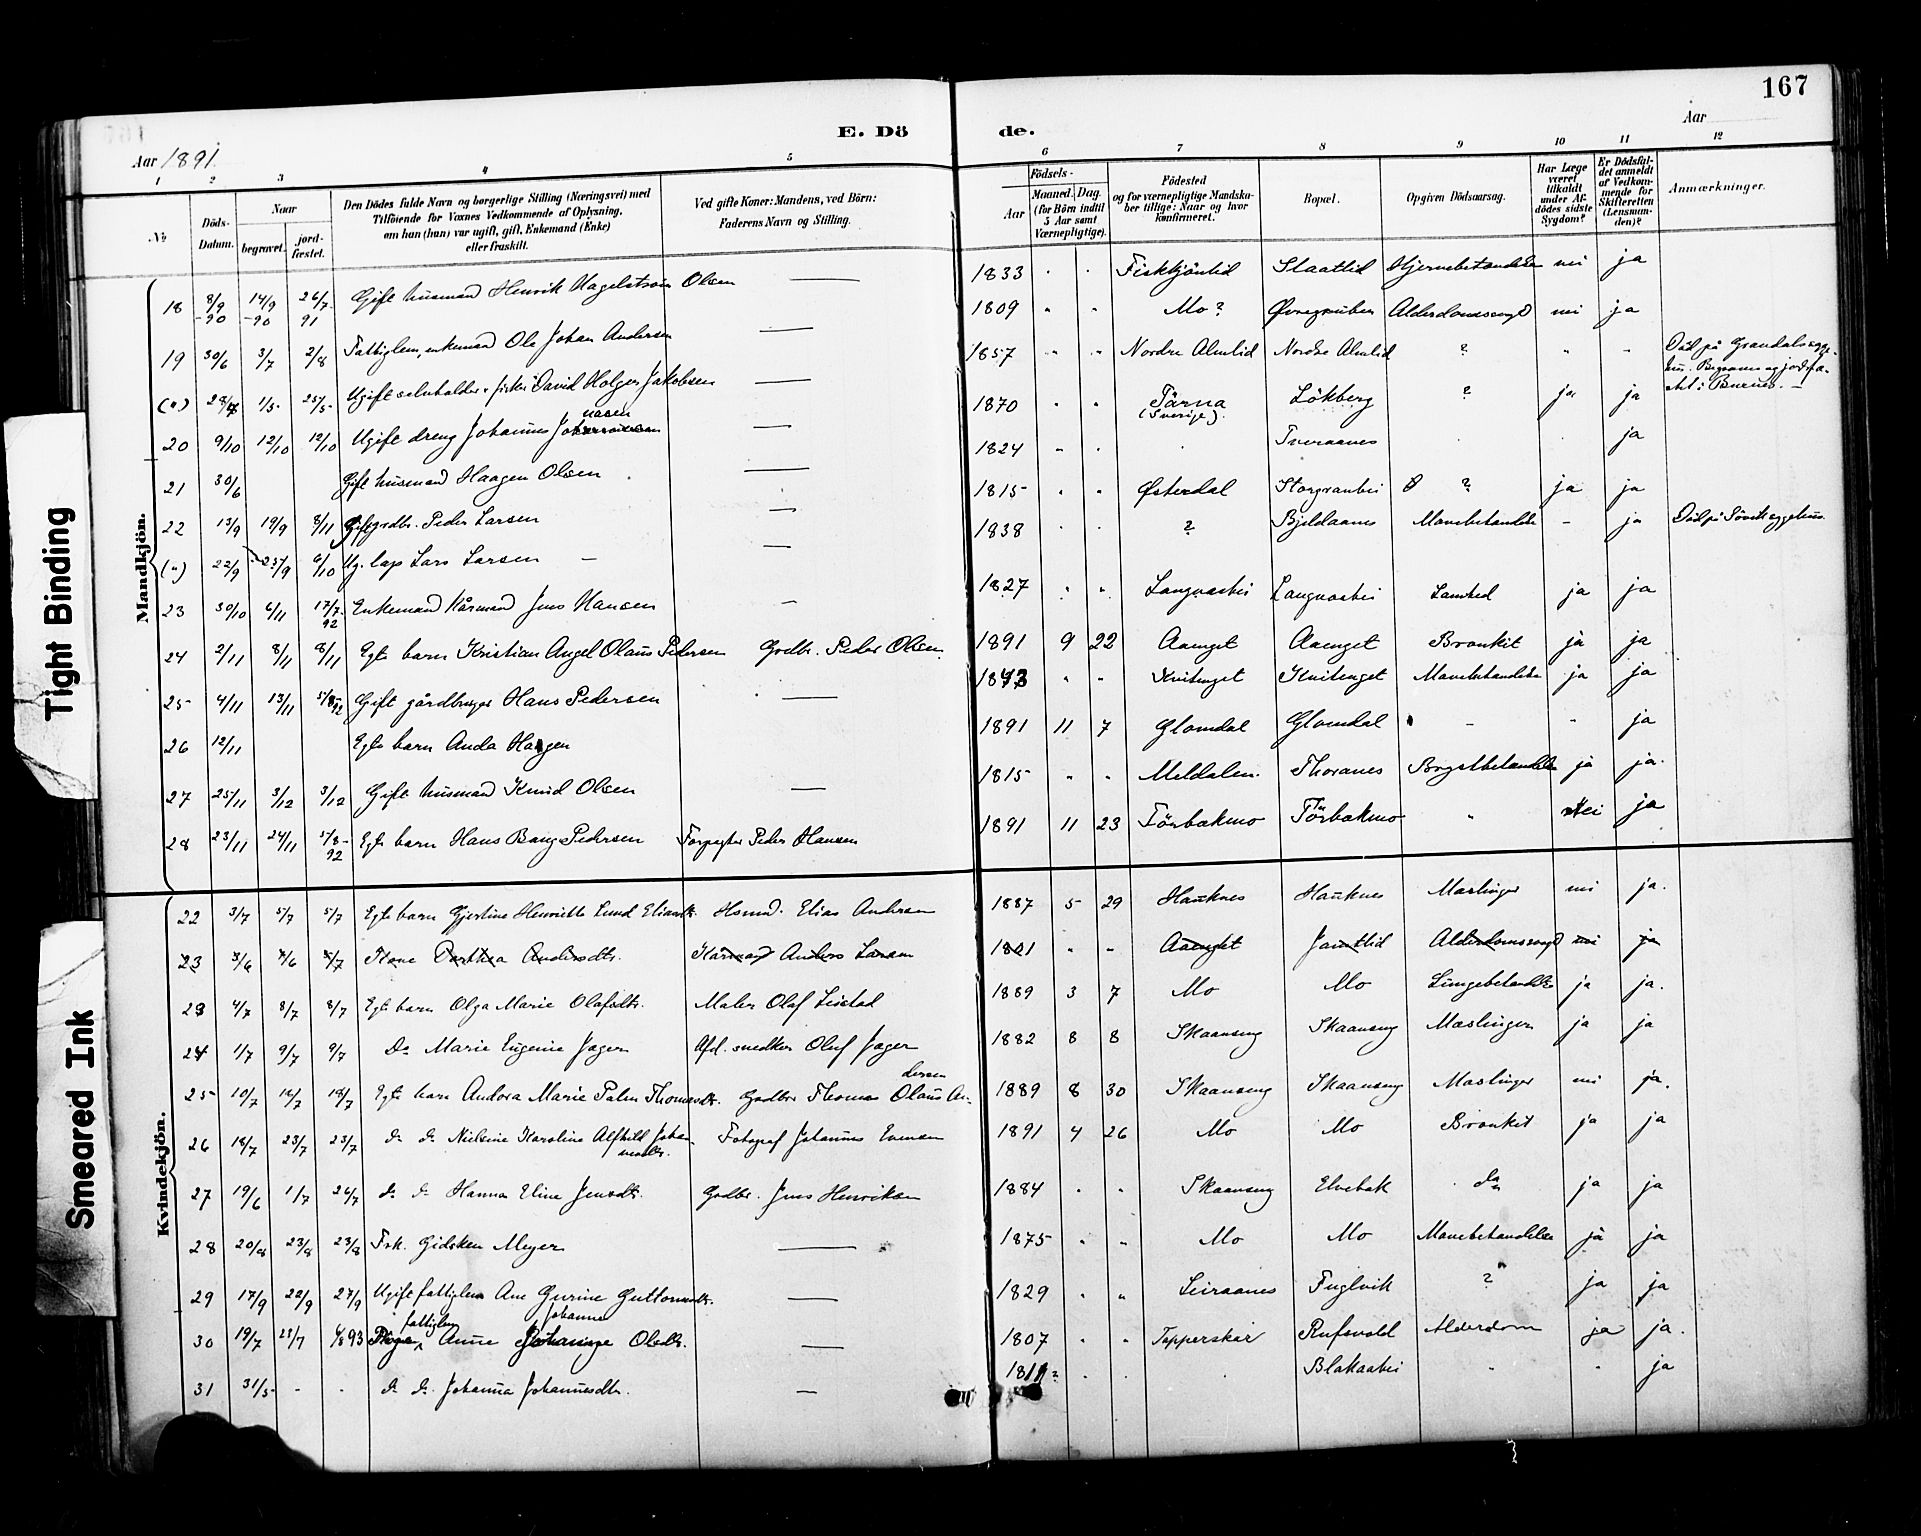 167
E. Dö de.
Aar 1891. Aar
1 2 3 4 5 6 7 8 9 10 11 12
№ Döds-Datum. Naar begravet. jord-fæstet. Den Dödes fulde Navn og borgerlige Stilling (Næringsvei) med Tilföiende for Voxnes Vedkommende af Oplysning, om han (hun) var ugift, gift, Enkemand (Enke) eller fraskilt. Ved gifte Koner: Mandens, ved Börn: Faderens Navn og Stilling. Födsels- Aar Maaned. Dag. (for Börn indtil 5 Aar samt Værnepligtige). Födested og for værnepligtige Mandskaber tillige: Naar og hvor konfirmeret. Bopæl. Opgiven Dödsaarsag. Har Læge været tilkaldt under Afdödes sidste Sygdom? Er Dödsfaldet anmeldt af Vedkommende for Skifteretten (Lensmanden)? Anmærkninger.
Mandkjön.
18 8/9 -90 14/9 -90 26/7 91 Gift husmand Henrik Hagelstrøm Olsen — 1833 Fiskktjönlid Staatlid Hjernebetændelse nei ja
19 30/6 3/7 2/8 Fattiglem, enkemand Ole Johan Andersen — 1809 Mo? Øvregruben Alderdomssvagh nei ja
(") 28/4 1/5 25/5 Ugift selvholder, fisker David Holger Jakobsen — 1857 Nordre Almlid Nordre Almlid ? " " Död på Grundals syge-hus. Begravet og jordfæ-stet i Burnes.
20 9/10 12/10 12/10 Ugift dreng Johannes Johannesen — 1870 Tärna (Sverige). Lökberg ? ja ja
21 30/6 Gift husmand Haagen Olsen — 1824 Tveraanes ja
22 13/9 19/9 8/11 Gift grdbr. Peder Larsen — 1815 Østerdal Storgrubei ? ja ja
(") 22/9 25/9 6/10 Ug. lap Lars Larsen — 1838 ? Bjeldaanes Mavebetændelse - ja Död på Sövik sygehus.
23 30/10 6/11 17/7 92 Enkemand Kårmand Jens Hansen — 1827 Langvasbei Langvasbei Lamhed ja ja
24 2/11 8/11 8/11 Egte barn Kristian Angel Olaus Pedersen Grdbr. Peder Olsen 1891 9 22 Aaenget Aaenget Bronkit ja ja
25 4/11 13/11 5/8 92 Gift gårdbruger Hans Pedersen — 1843 Kvitenget Kvitenget Mavebetændelse ja ja
26 12/11 Egte barn Anda Haagen 1891 11 7 Glomdal Glomdal - " ja
27 25/11 3/12 3/12 Gift husmand Knud Olsen — 1815 Meldalen. Thoranes Brystbetændelse ja ja.
28 23/11 24/11 5/8 - 92 Egte barn Hans Bang Pedersen Forpagter Peder Hansen 1891 11 23 Förbakmo Förbakmo " Nei ja
Kvindekjön.
22 3/7 5/7 5/7 Egte barn Gjertine Henriette Lund Eliasdtr. Hsmd. Elias Andersen 1887 5 29 Hauknes Hauknes Mæslinger nei ja.
23 3/6 7/6 5/7 Kone Dorthea Andersdtr. Kårmand Anders Larsen 1801 " " Aaenget Jamtlid Alderdomssvagh nei ja
23 4/7 8/7 8/7 Egte barn Olga Marie Olafsdtr. Maler Olaf Leistad 1889 3 7 Mo Mo Lungebetændelse ja ja.
24 1/7 9/7 9/7 Do Marie Eugenie Jager Afd. snedker Oluf Jager 1882 8 8 Skaanseng Skaanseng Mæslinger ja ja
25 10/7 16/7 18/7 Egte barn Andora Marie Palm Thomasdtr. Grdbr. Thomas Olaus An-dersen 1889 8 30 Skaanseng Skaanseng Mæslinger nei ja.
26 18/7 23/7 23/7 do do Nielsine Karoline Alfhild Johan-nesdtr. Fotograf Johannes Evensen 1891 4 26 Mo Mo Bronkit ja ja
27 19/6 1/7 26/7 do do Hanna Eline Jensdtr. Grdbr. Jens Henriksen 1884 Skaanseng Elvebak do ja ja
28 20/8 23/8 23/8 Frk. Gidsken Meyer — 1875 Mo Mo Mavebetændelse ja ja
29 17/9 22/9 27/9 Ugift fattiglem Ane Gurine Guttormsdtr. — 1829 Leiraanes Fuglvik ? ja ja
30 19/7 23/7 6/8 93 Pige, fattiglem Anne Johanne Olsdtr. — 1807 Tapperskar Rufsvold Alderdom ja ja.
31 31/5 - - do do. Johanna Johannesdtr. — 1811? Blakaabei " " ja
Tight Binding
Smeared Ink